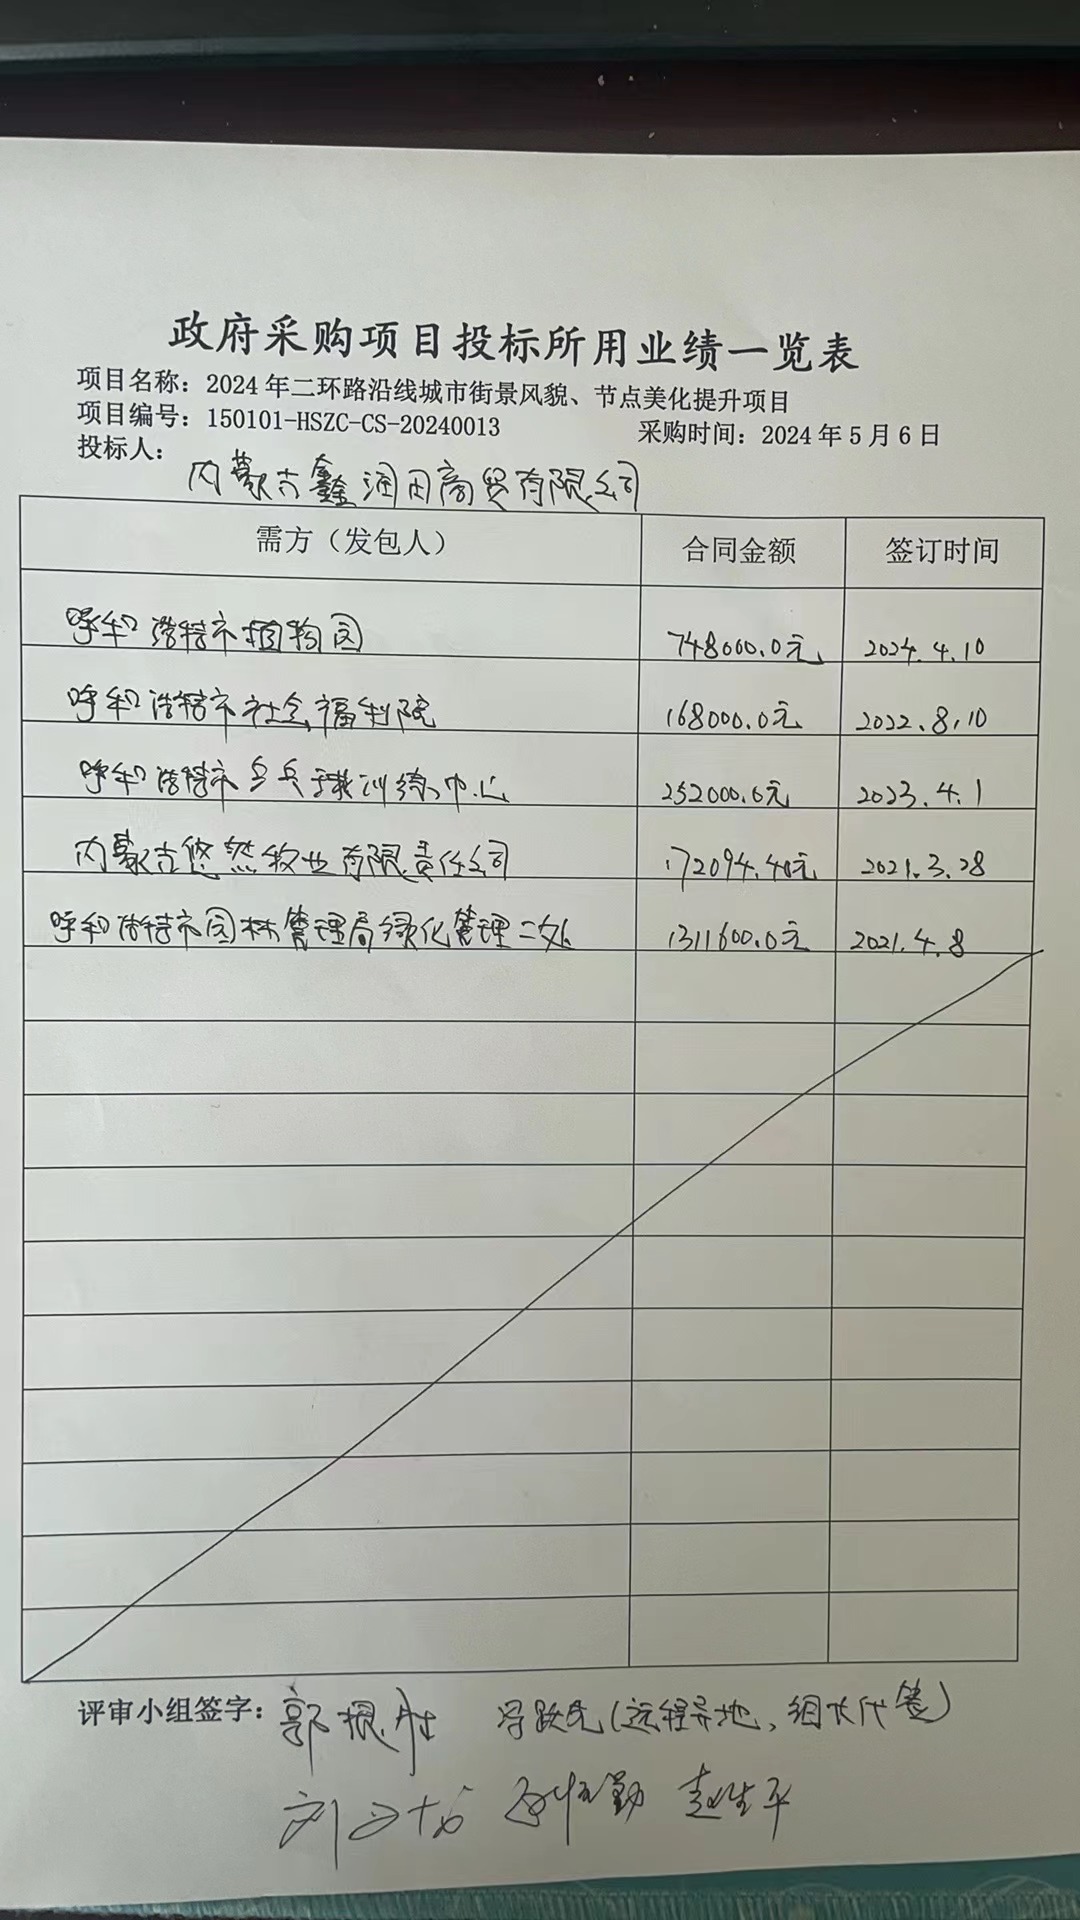 政府采购项目投标所用业绩一览表
项目名称：2024年二环路沿线城市街景风貌、节点美化提升项目
项目编号：150101-HSZC-CS-20240013 采购时间：2024年5月6日
投标人：
内蒙古鑫润田商贸有限公司
需方（发包人） 合同金额 签订时间
呼和浩特市植物园 748000.0元 2024.4.10
呼和浩特市社会福利院 168000.0元 2022.8.10
呼和浩特市乒乓球训练中心 252000.0元 2023.4.1
内蒙古悠然牧业有限责任公司 172094.40元 2021.3.28
呼和浩特市园林管理局绿化管理二处 1311600.0元 2021.4.8
评审小组签字：郭根胜 跃先（远程异地，组长代签）
刘 勤 赵生平